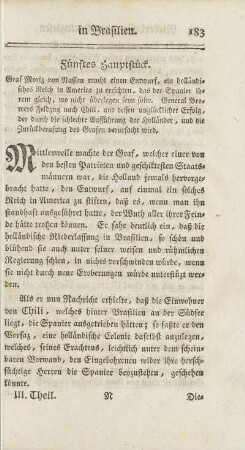 in Brasilien. 183
Fünftes Hauptstück.
Graf Moriz von Nassau macht einen Entwurf, ein holländi-
sches Reich in America zu errichten, das der Spanier ih-
rem gleich, wo nicht überlegen seyn sollte. General Bro-
wers Feldzug nach Chili, und dessen unglücklicher Erfolg,
der durch die schlechte Aufführung der Holländer, und die
Zurückberufung des Grafen verursacht wird.
Mittlerweile machte der Graf, welcher einer von
den besten Patrioten und geschicktesten Staats-
männern war, die Holland jemals hervorge-
bracht hatte, den Entwurf, auf einmal ein solches
Reich in America zu stiften, daß es, wenn man ihn
standhaft ausgeführet hatte, der Wuth aller ihrer Fein-
de hätte trotzen können. Er sahe deutlich ein, daß die
holländische Niederlassung in Brasilien, so schön und
blühend sie auch unter seiner weisen und rühmlichen
Regierung schien, in nichts verschwinden würde, wenn
sie nicht durch neue Eroberungen würde unterstüzt wer-
den.
Als er nun Nachricht erhielte, daß die Einwohner
von Chili, welches hinter Brasilien an der Südsee
liegt, die Spanier ausgetrieben hätten; so faßte er den
Vorsaz, eine holländische Colonie daselbst anzulegen,
welches, seines Erachtens, leichtlich unter dem schein-
baren Vorwand, den Eingebohrnen wider ihre herrsch-
süchtige Herren die Spanier beyzustehen, geschehen
könnte.
III. Theil. N Die-